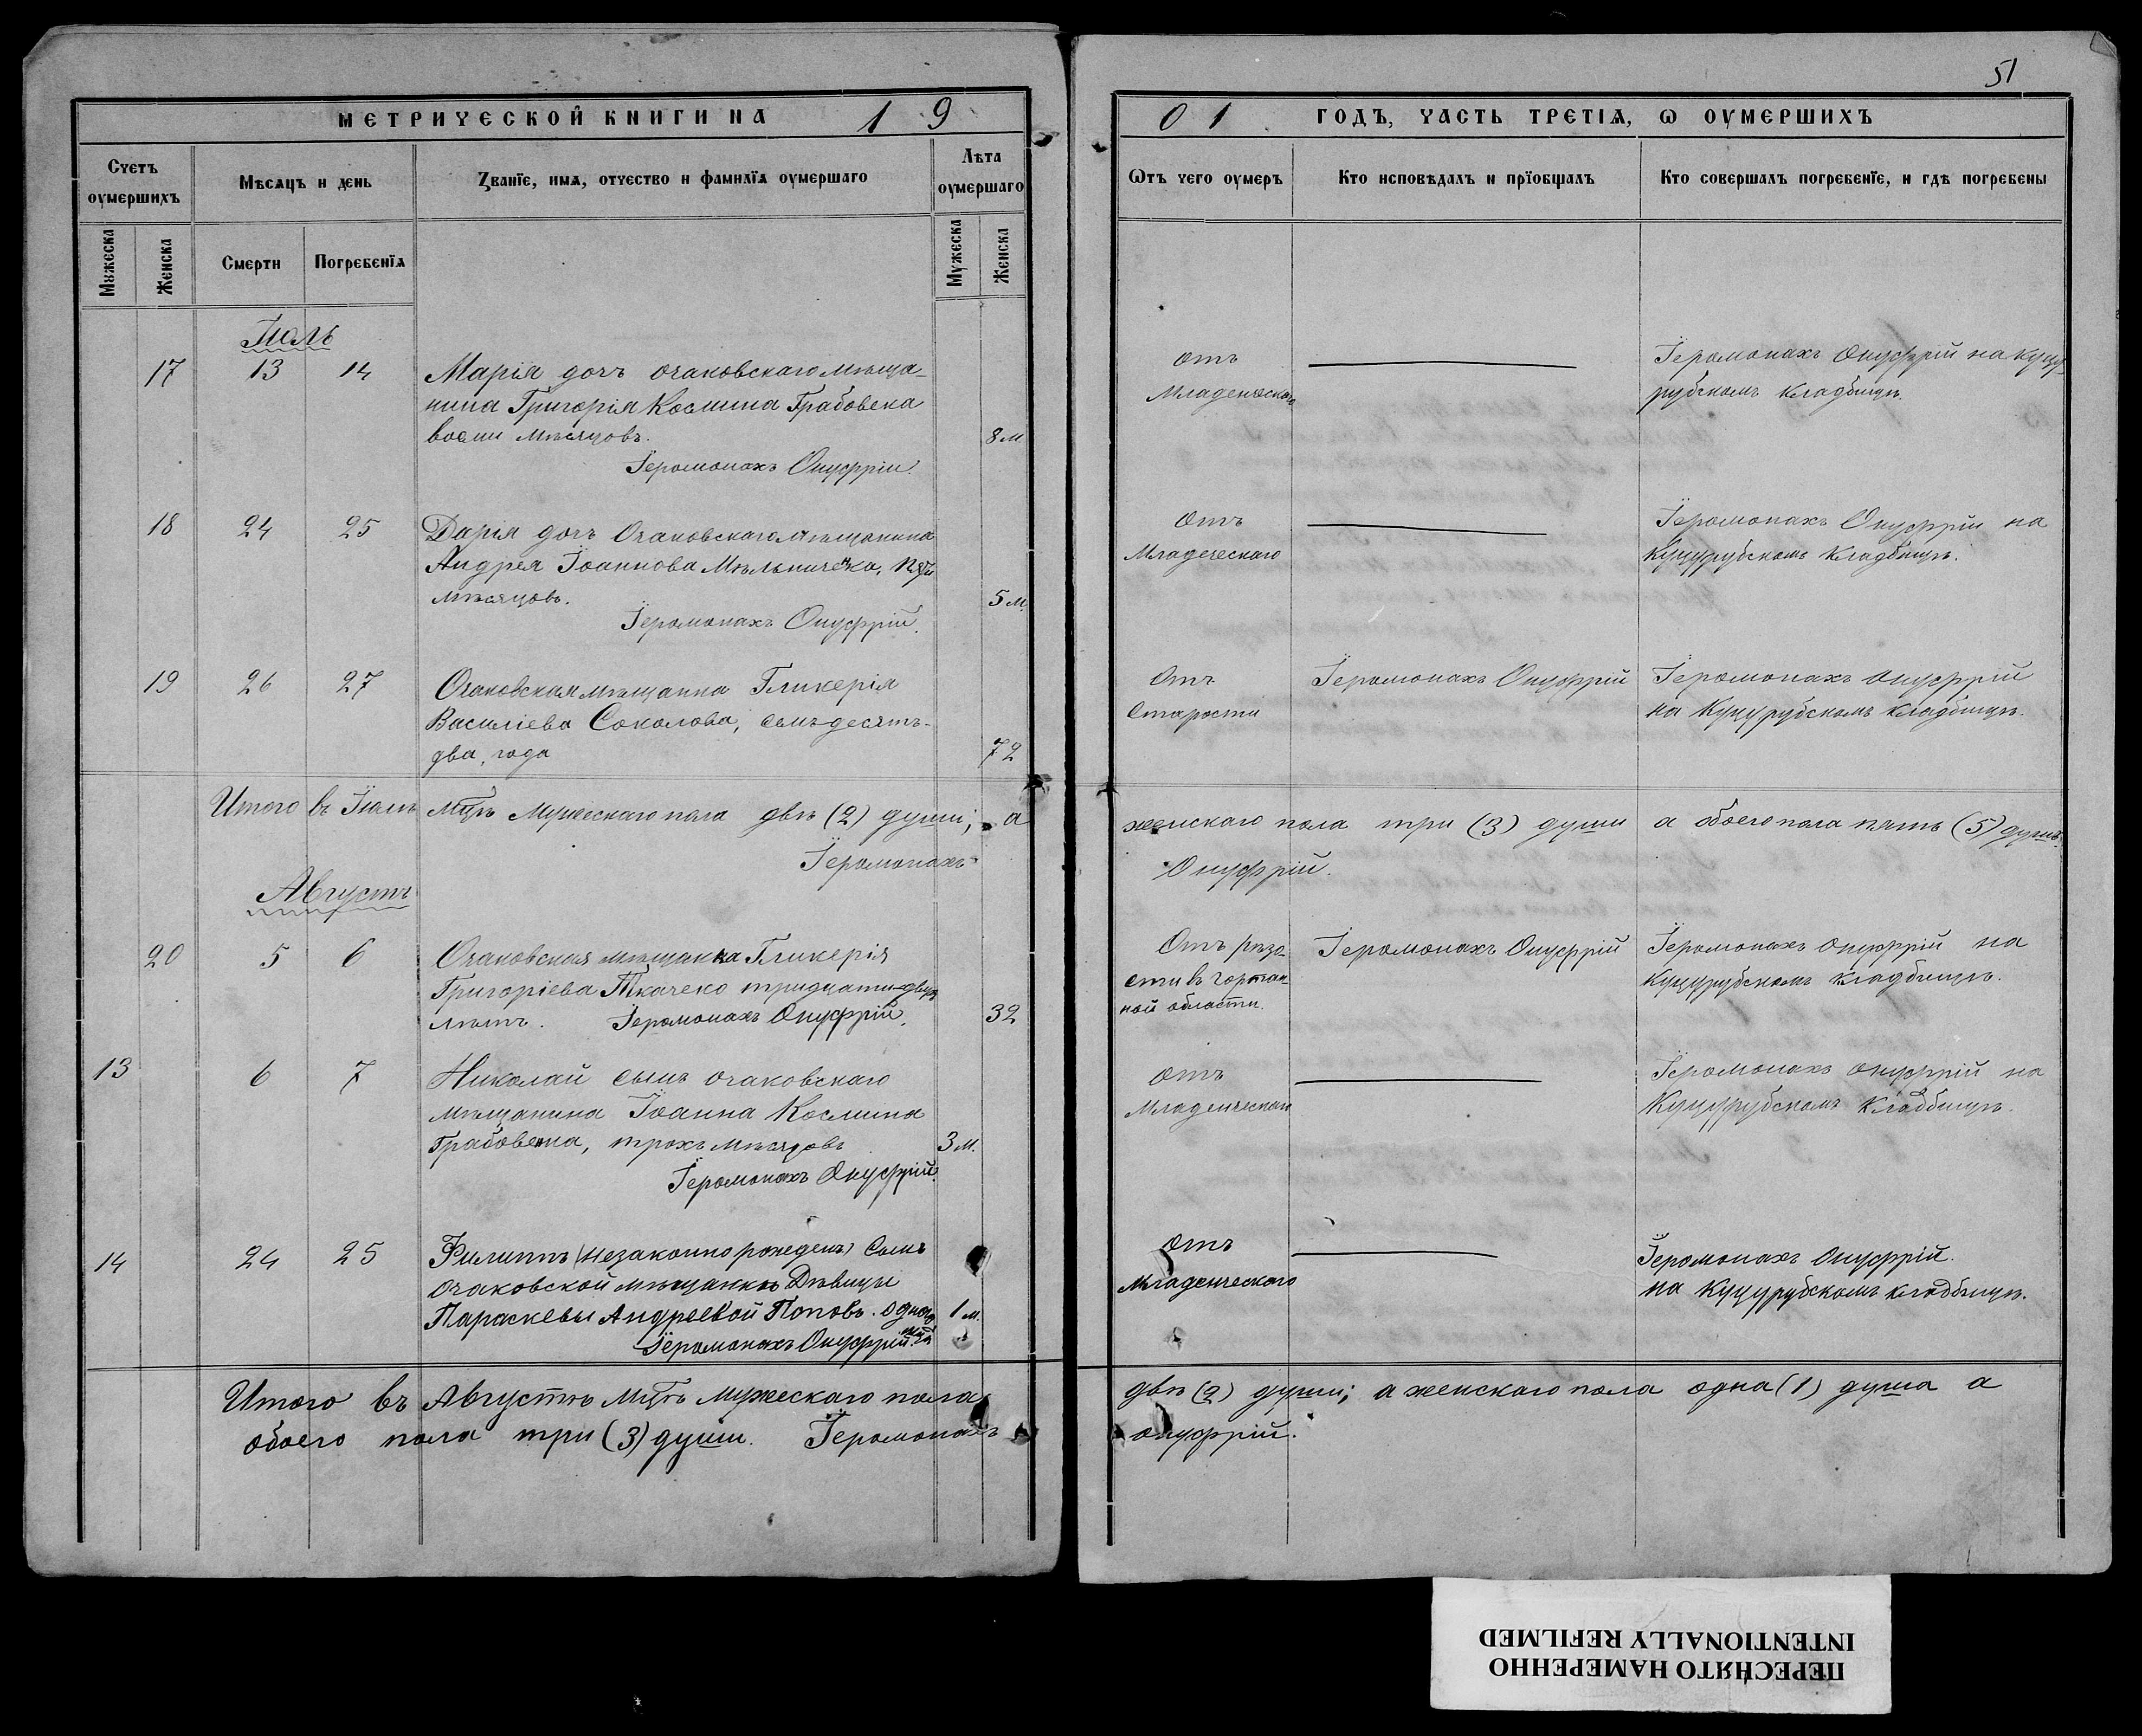 51
МЕТРИЧЕСКОЙ КНИГИ НА 19
01 ГОДЪ, ЧАСТЬ ТРЕТІЯ, Ѡ ОУМЕРШИХЪ
Счетъ оумершихъ
Мѣсяцъ и день
Званїе, имя, отчество и фамилїя оумершаго
Лѣта оумершаго
Ѿтъ чего оумеръ
Кто исповѣдалъ и прїобщалъ
Кто совершалъ погребенїе, и гдѣ погребены
Мужеска
Женска
Смерти
Погребенїя
Мужеска
Женска
Іюль
17 13 14 Марія дочъ очаковскаго мѣща-
нина Григорія Космина Грабовска
восми мѣсяцовъ. 8 м
Іеромонахъ Онуфрій.
отъ
Младенческаго
Іеромонахъ Онуфрій на Куцу-
рубскомъ кладбищѣ.
18 24 25 Дарія дочъ Очаковскаго мѣщанина
Андрея Іоаннова Мѣльниченка, пяти
мѣсяцовъ. 5 м.
Іеромонахъ Онуфрій.
Отъ
Младеческаго
Іеромонахъ Онуфрій на
Куцурубскомъ кладбищѣ.
19 26 27 Очаковская мѣщанка Гликерія
Василіева Соколова, семъдесятъ-
два, года 72
Отъ
Старости
Іеромонахъ Онуфрій
Іеромонахъ Онуфрій
на Куцурубскомъ кладбищѣ.
Итого въ Іюлѣ мцѣ Мужескаго пола двѣ (2) души; а
женскаго пола три (3) души а обоего пола пять (5) душъ.
Іеромонахъ
Онуфрій.
Августъ
20 5 6 Очаковская мѣщанка Гликерія
Григоріева Ткачеко тридцати-двухъ
лѣтъ. Іеромонахъ Онуфрій. 32
Отъ рѣзо-
сти въ гортан-
ной области.
Іеромонахъ Онуфрій
Іеромонахъ Онуфрій на
Куцурубскомъ кладбищѣ.
13 6 7 Николай сынъ очаковскаго
мѣщанина Іоанна Космина
Грабовска, трохъ мѣсяцовъ 3 м.
Іеромонахъ Онуфрій.
отъ
Младенческаго
Іеромонахъ Онуфрій на
Куцурубскомъ кладбищѣ.
14 24 25 Филиппъ (незаконно рожденъ) Сынъ
очаковской мѣщанки Дѣвицы
Параскевы Андреевой Поповъ. одного 1 м.
Іеромонахъ Онуфрій.
отъ
Младенческаго
Іеромонахъ Онуфрій.
на Куцурубскомъ кладбищѣ.
Итого въ Августѣ мцѣ мужескаго пола
двѣ (2) души; а женскаго пола одна (1) душа а
обоего пола три (3) души. Іеромонахъ
Онуфрій.
ПЕРЕСНЯТО НАМЕРЕННО
INTENTIONALLY REFILMED